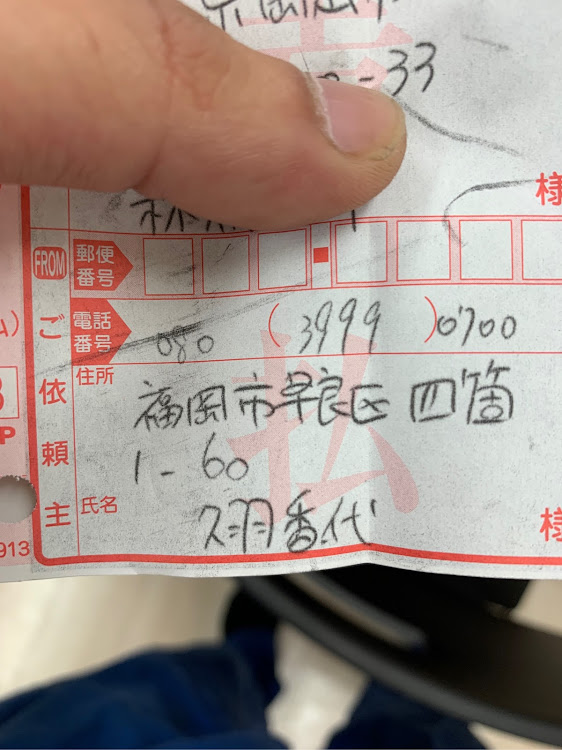 -33
様
FROM 郵便番号
電話番号 080 (3999) 0700
ご依頼主
住所
福岡市早良区 四箇
1-60
氏名
久羽香代
様
払
913